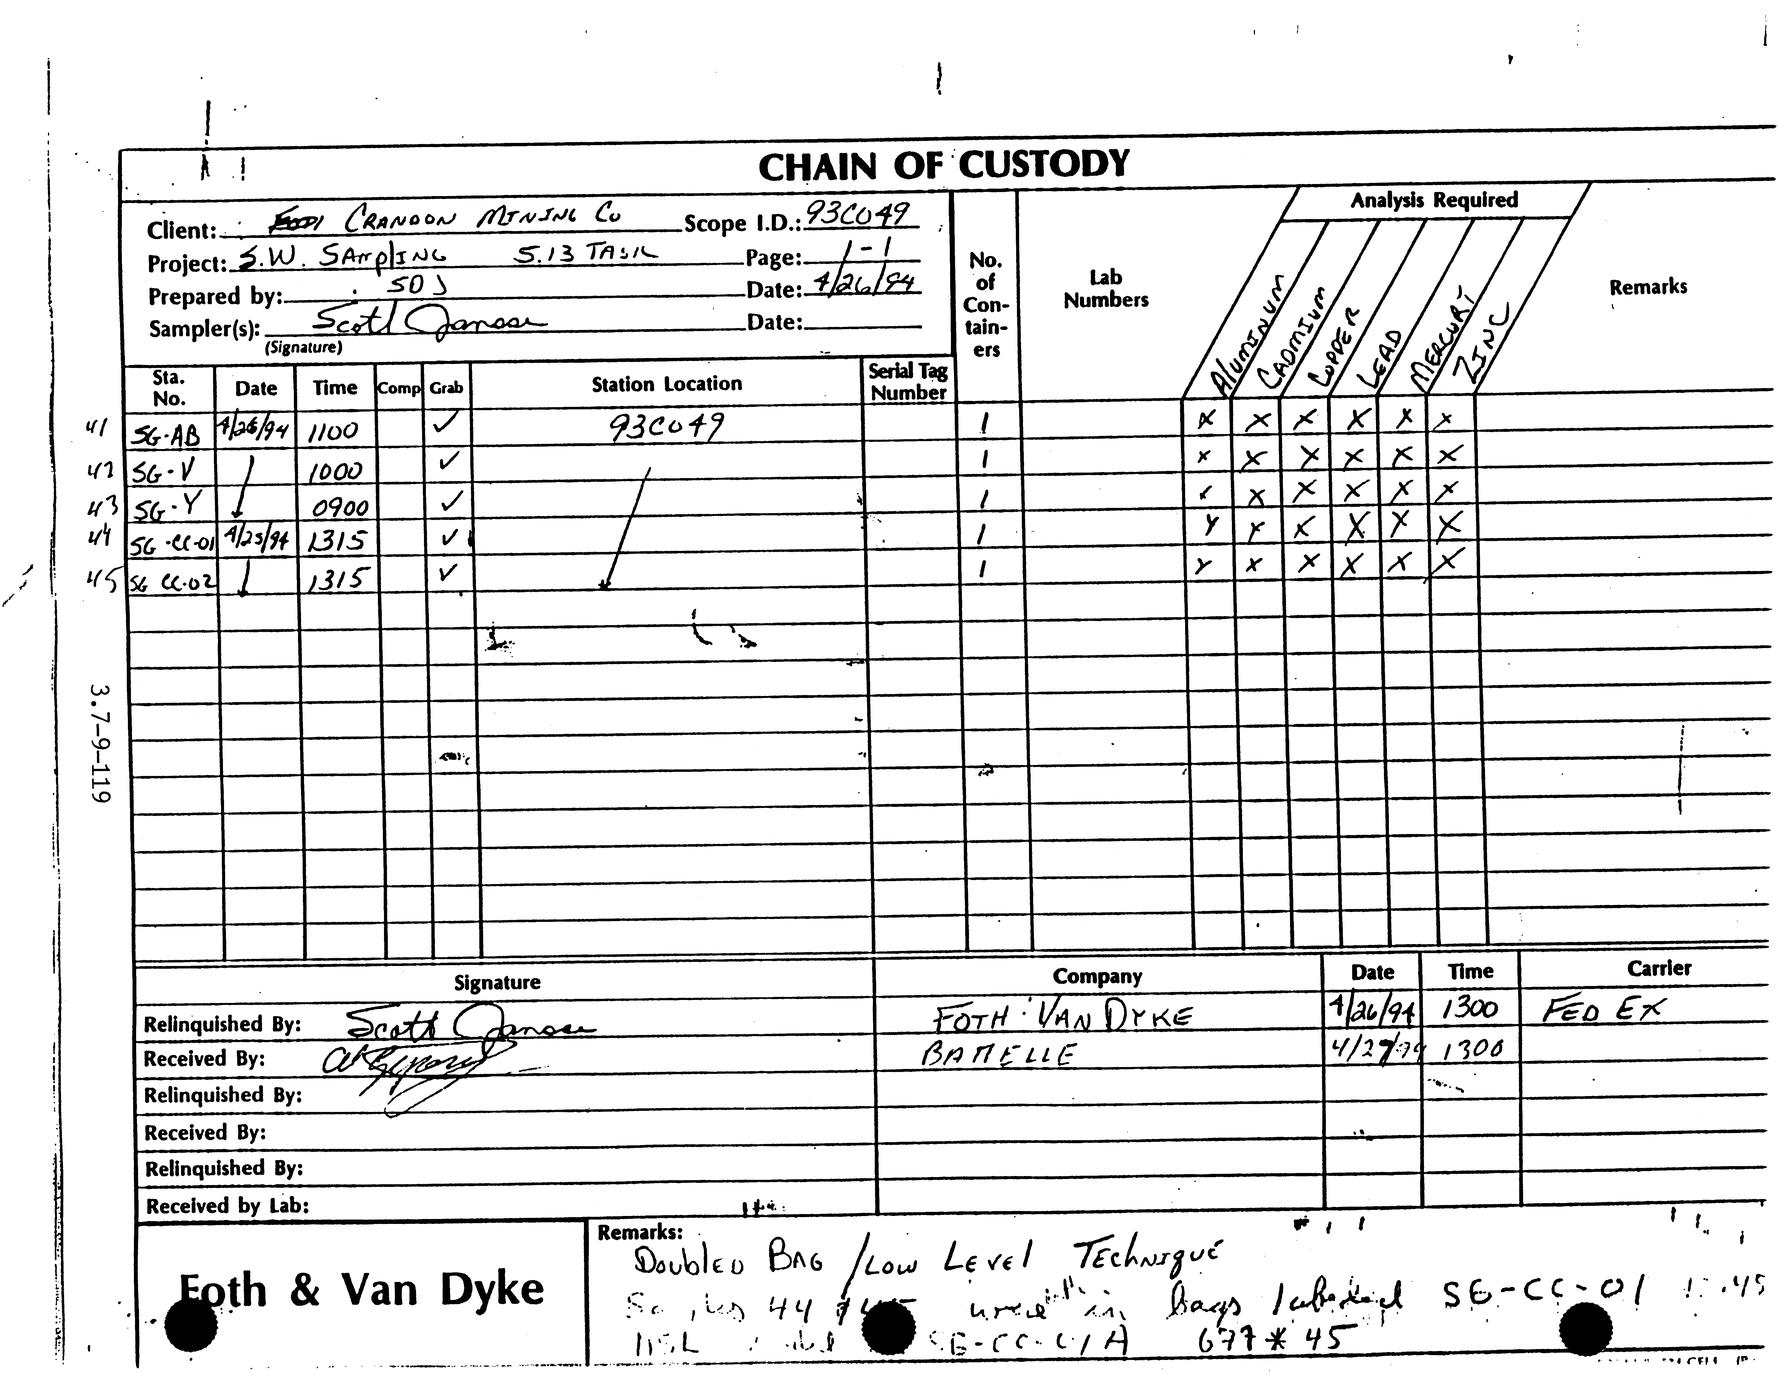 CHAIN OF CUSTODY
Client: CRANDON MINING CO Scope I.D.: 93C049
Project: S.W. SAMPLING 5.13 TASK Page: 1-1
Prepared by: SDJ Date: 4/26/94
Sampler(s): Scott Date:
(Signature)
No. of Con-tain-ers
Lab Numbers
Analysis Required
ALUMINUM CADMIUM COPPER LEAD MERCURY ZINC
Remarks
Sta. No. Date Time Comp Grab Station Location Serial Tag Number
41 SG-AB 4/26/94 1100 ✓ 93C049 1 X X X X X X
42 SG-V 1000 ✓ 1 X X X X X X
43 SG-Y 0900 ✓ 1 X X X X X X
44 SG-CC-01 4/25/94 1315 ✓ 1 X X X X X X
45 SG CC-02 1315 ✓ 1 X X X X X X
3.7-9-119
Signature Company Date Time Carrier
Relinquished By: Scott FOTH & VAN DYKE 4/26/94 1300 FED EX
Received By: BATTELLE 4/27/94 1300
Relinquished By:
Received By:
Relinquished By:
Received by Lab:
Foth & Van Dyke
Remarks:
DOUBLED BAG / LOW LEVEL TECHNIQUE
44 in bags labeled SG-CC-01
677* 45